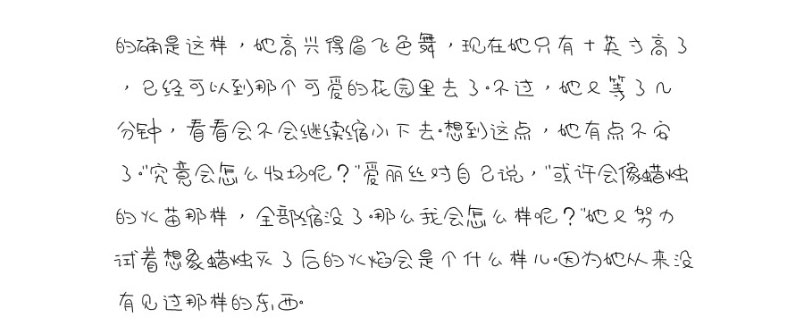 的确是这样，她高兴得眉飞色舞，现在她只有十英寸高了
，已经可以到那个可爱的花园里去了.不过，她又等了几
分钟，看看会不会继续缩小下去.想到这点，她有点不安
了."究竟会怎么收场呢？"爱丽丝对自己说，"或许会像蜡烛
的火苗那样，全部缩没了.那么我会怎么样呢？"她又努力
试着想象蜡烛灭了后的火焰会是个什么样儿.因为她从来没
有见过那样的东西.